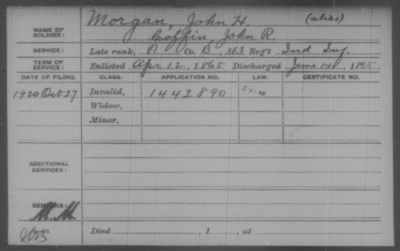 Morgan, John H. (alias)
NAME OF SOLDIER: Coffin, John R.
SERVICE: Late rank, Co. B, Regt Ind Inf.
TERM OF SERVICE: Enlisted Apr 12, 1865 Discharged June 14, 1865
DATE OF FILING. CLASS. APPLICATION NO. LAW. CERTIFICATE NO.
1920 Oct 27 Invalid, 1442890
Widow,
Minor,
ADDITIONAL SERVICES:
REMARKS:
Died , 1 , at